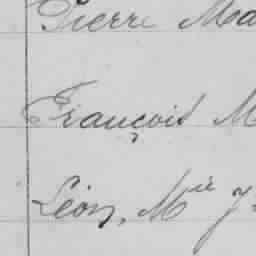 Pierre Ma
François M
Léon, Mie J